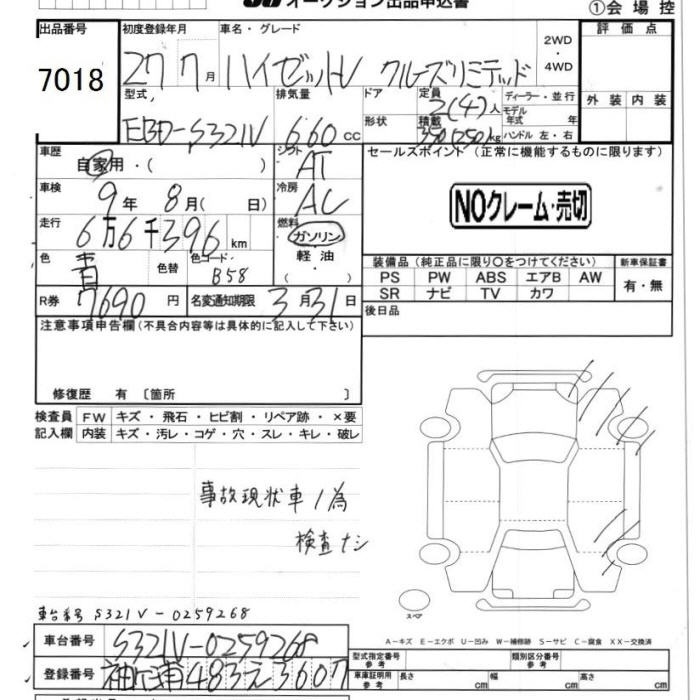 オークション出品申込書
①会場控
出品番号
7018
初度登録年月 車名・グレード
27 7月 ハイゼットV クルーズリミテッド
2WD
・
4WD
評価点
型式 排気量 ドア 定員 ディーラー・並行
EBD-S321V 660cc 2(4)人
モデル年式 年
形状 積載
350(250)kg ハンドル 左・右
外装 内装
車歴 シフト
自家用・( ) AT
セールスポイント (正常に機能するものに限ります)
車検 冷房
9年 8月( 日) AC
NOクレーム・売切
走行 燃料
6万6千396km ガソリン
軽油
( )
色 色替 色コード
青 B58
装備品(純正品に限り○をつけてください) 新車保証書
PS PW ABS エアB AW
SR ナビ TV カワ
有・無
R券 7690円 名変通知期限 3月31日
後日品
注意事項申告欄(不具合内容等は具体的に記入して下さい)
修復歴 有 〔箇所 〕
検査員 FW キズ・飛石・ヒビ割・リペア跡・×要
記入欄 内装 キズ・汚レ・コゲ・穴・スレ・キレ・破レ
事故現状車ノ為
検査ナシ
スペア
車台番号 S321V-0259268
A-キズ E-エクボ U-凹み W-補修跡 S-サビ C-腐食 XX-交換済
車台番号 S321V-0259268
型式指定番号 参考 類別区分番号 参考
登録番号 袖ヶ浦483え3607
車庫証明用 参考 長さ cm 幅 cm 高さ cm